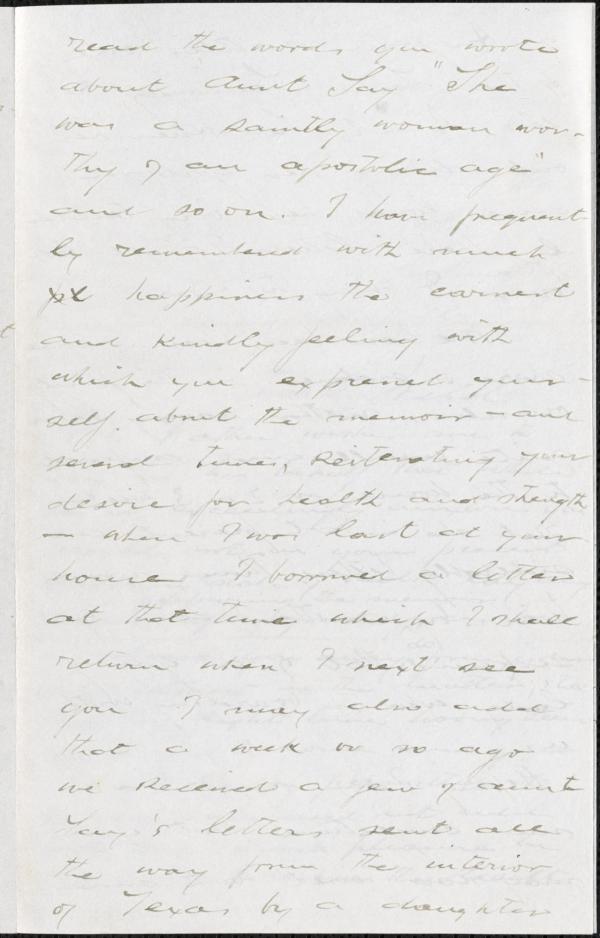 read the words you wrote
about Aunt Say "She
was a saintly woman wor-
thy of an apostolic age"
and so on. I have frequent-
ly remembered with much
happiness the earnest
and kindly feeling with
which you expressed your-
self about the memoir - and
several times, reiterating your
desire for health and strength
- when I was last at your
house I borrowed a letter
at that time which I shall
return when I next see
you I may also add
that a week or so ago
we received a few of aunt
Say's letters sent all
the way from the interior
of Texas by a daughter